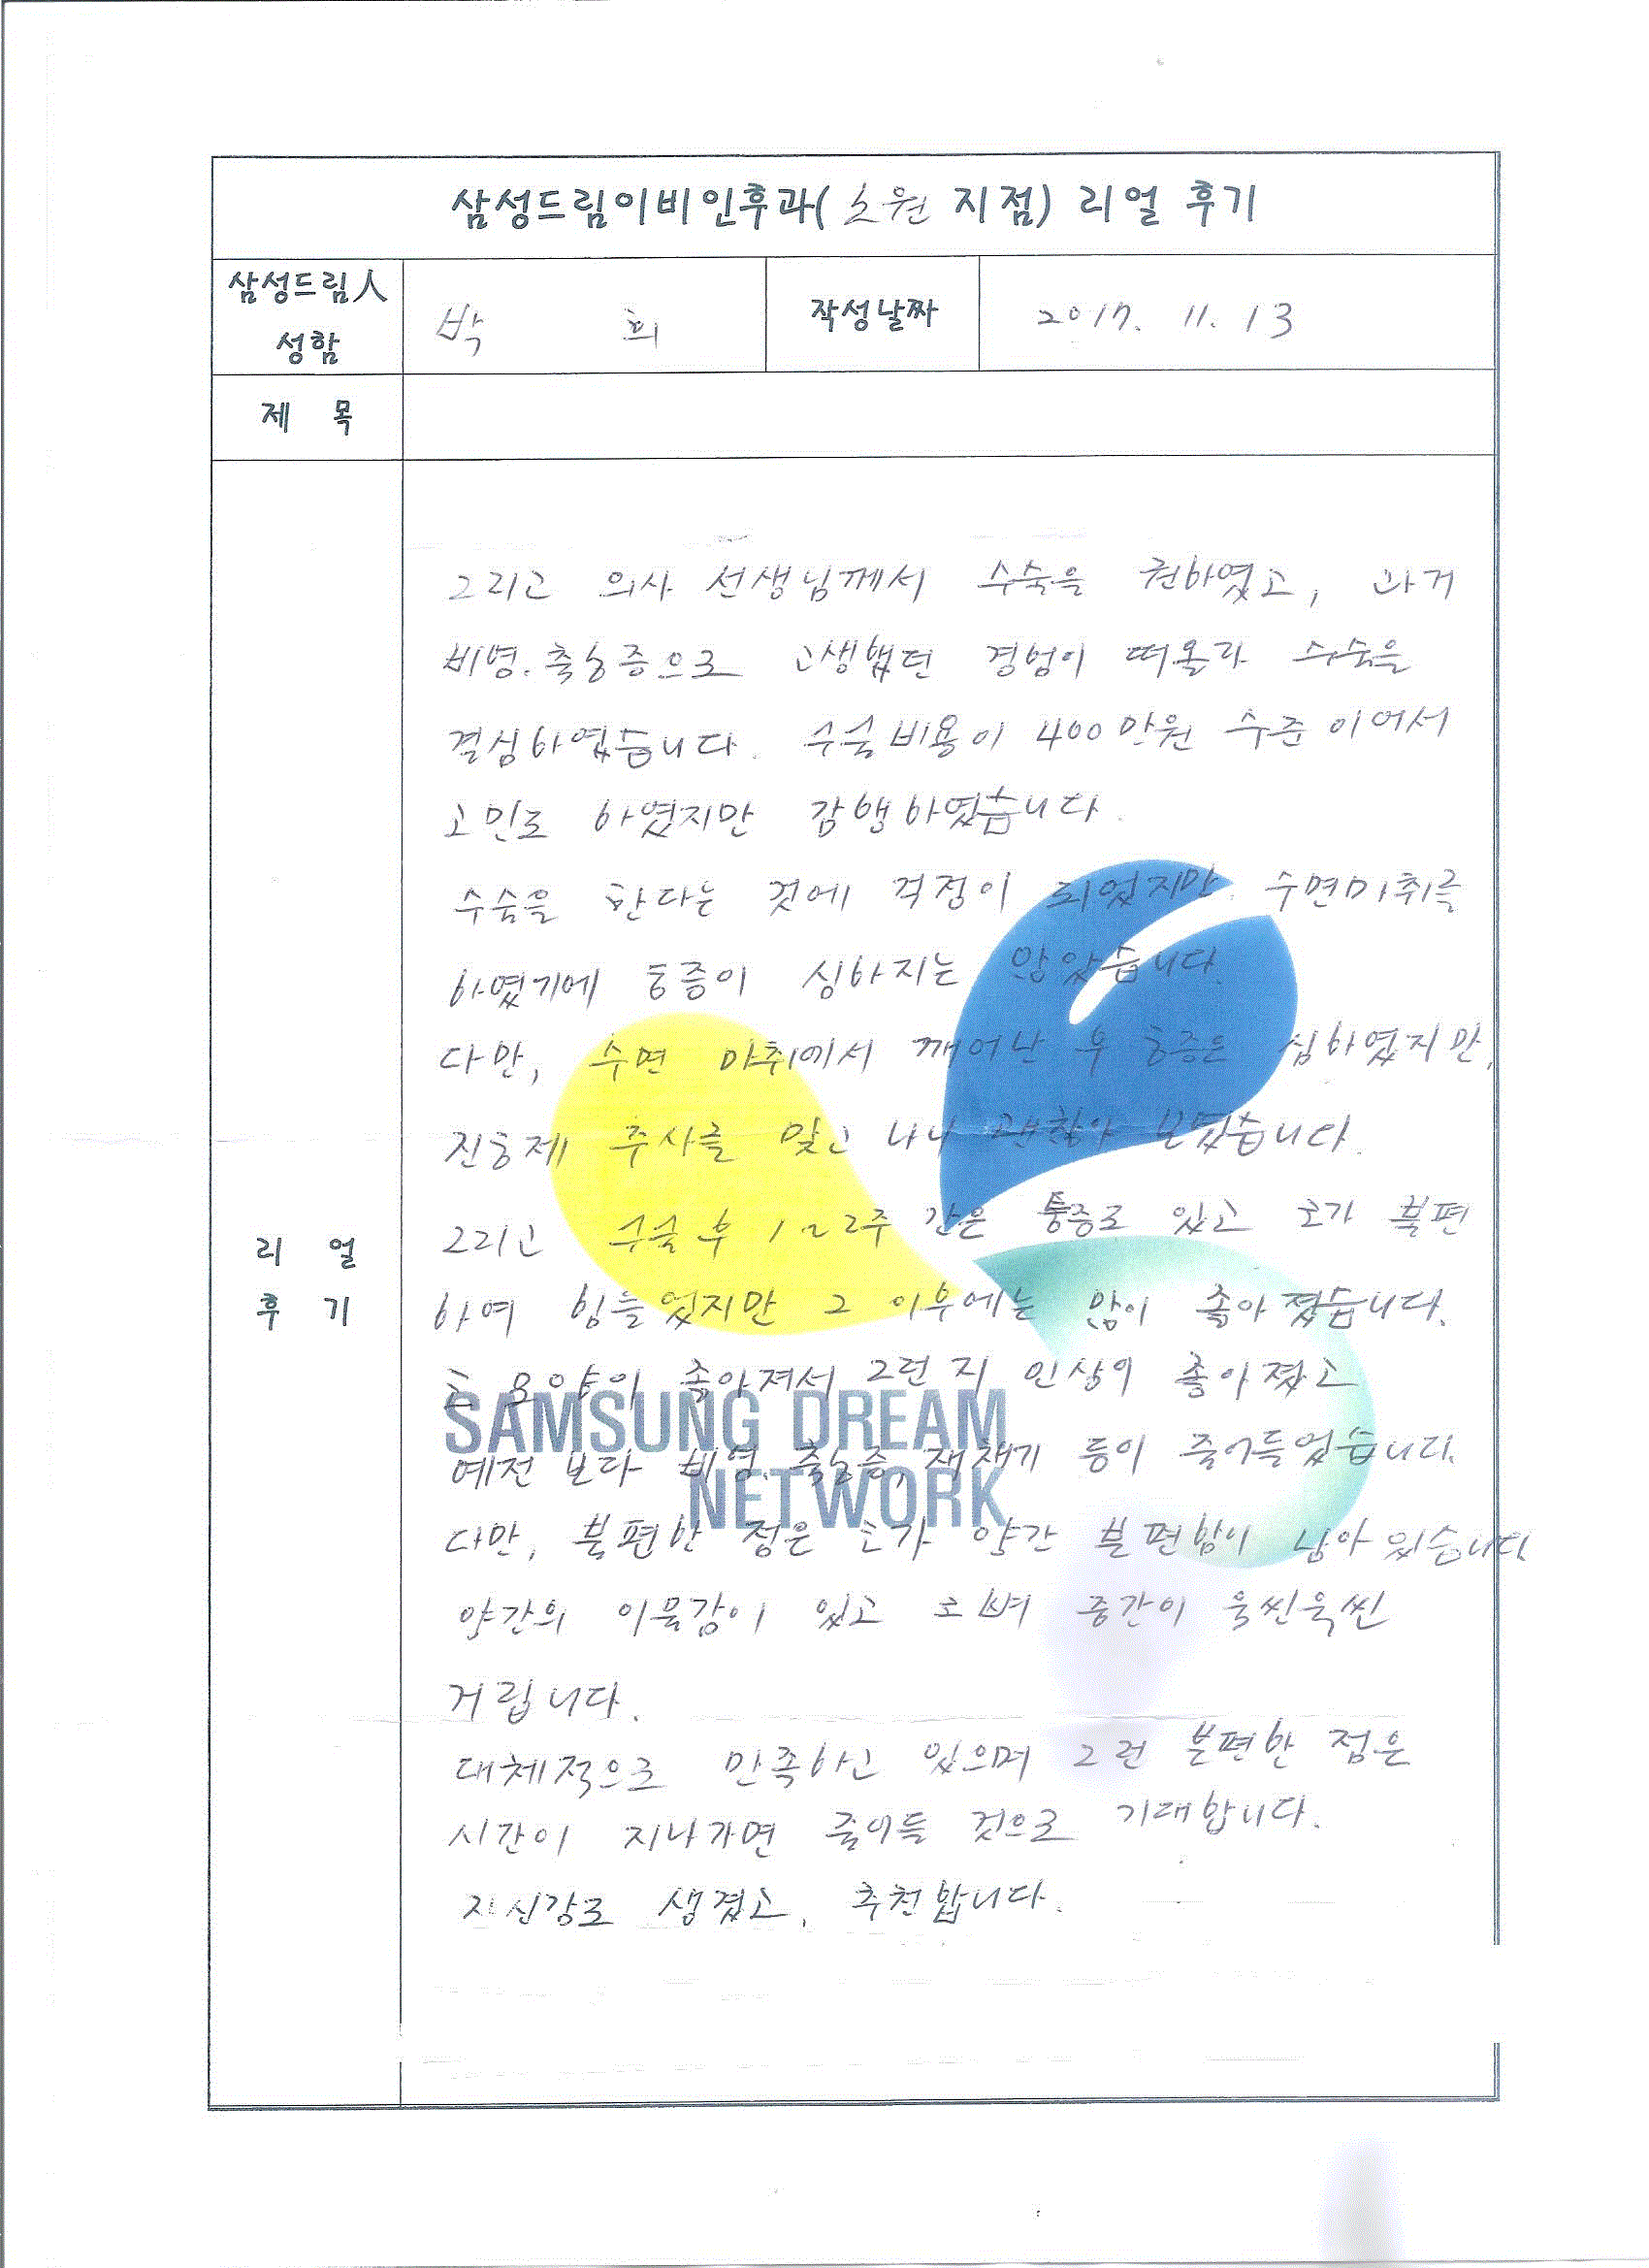 삼성드림이비인후과( 노원 지점) 리얼 후기
삼성드림人
성함
박 희
작성날짜
2017. 11. 13
제 목
리 얼
후 기
그리고 의사 선생님께서 수술을 권하였고, 과거
비염.축농증으로 고생했던 경험이 떠올라 수술을
결심하였습니다. 수술비용이 400만원 수준이어서
고민도 하였지만 감행하였습니다.
수술을 한다는 것에 걱정이 되었지만 수면마취를
하였기에 통증이 심하지는 않았습니다.
다만, 수면 마취에서 깨어난 후 통증은 심하였지만,
진통제 주사를 맞고 나니 괜찮아 졌습니다.
그리고 수술 후 1~2주 간은 통증도 있고 코가 불편
하여 힘들었지만 그 이후에는 많이 좋아졌습니다.
코 모양이 좋아져서 그런지 인상이 좋아졌고
예전 보다 비염. 축농증, 재채기 등이 줄어들었습니다.
다만, 불편한 점은 코가 약간 불편함이 남아 있습니다
약간의 이물감이 있고 코 뼈 중간이 욱씬욱씬
거립니다.
대체적으로 만족하고 있으며 그런 불편한 점은
시간이 지나가면 줄어들 것으로 기대합니다.
자신감도 생겼고, 추천합니다.
SAMSUNG DREAM
NETWORK